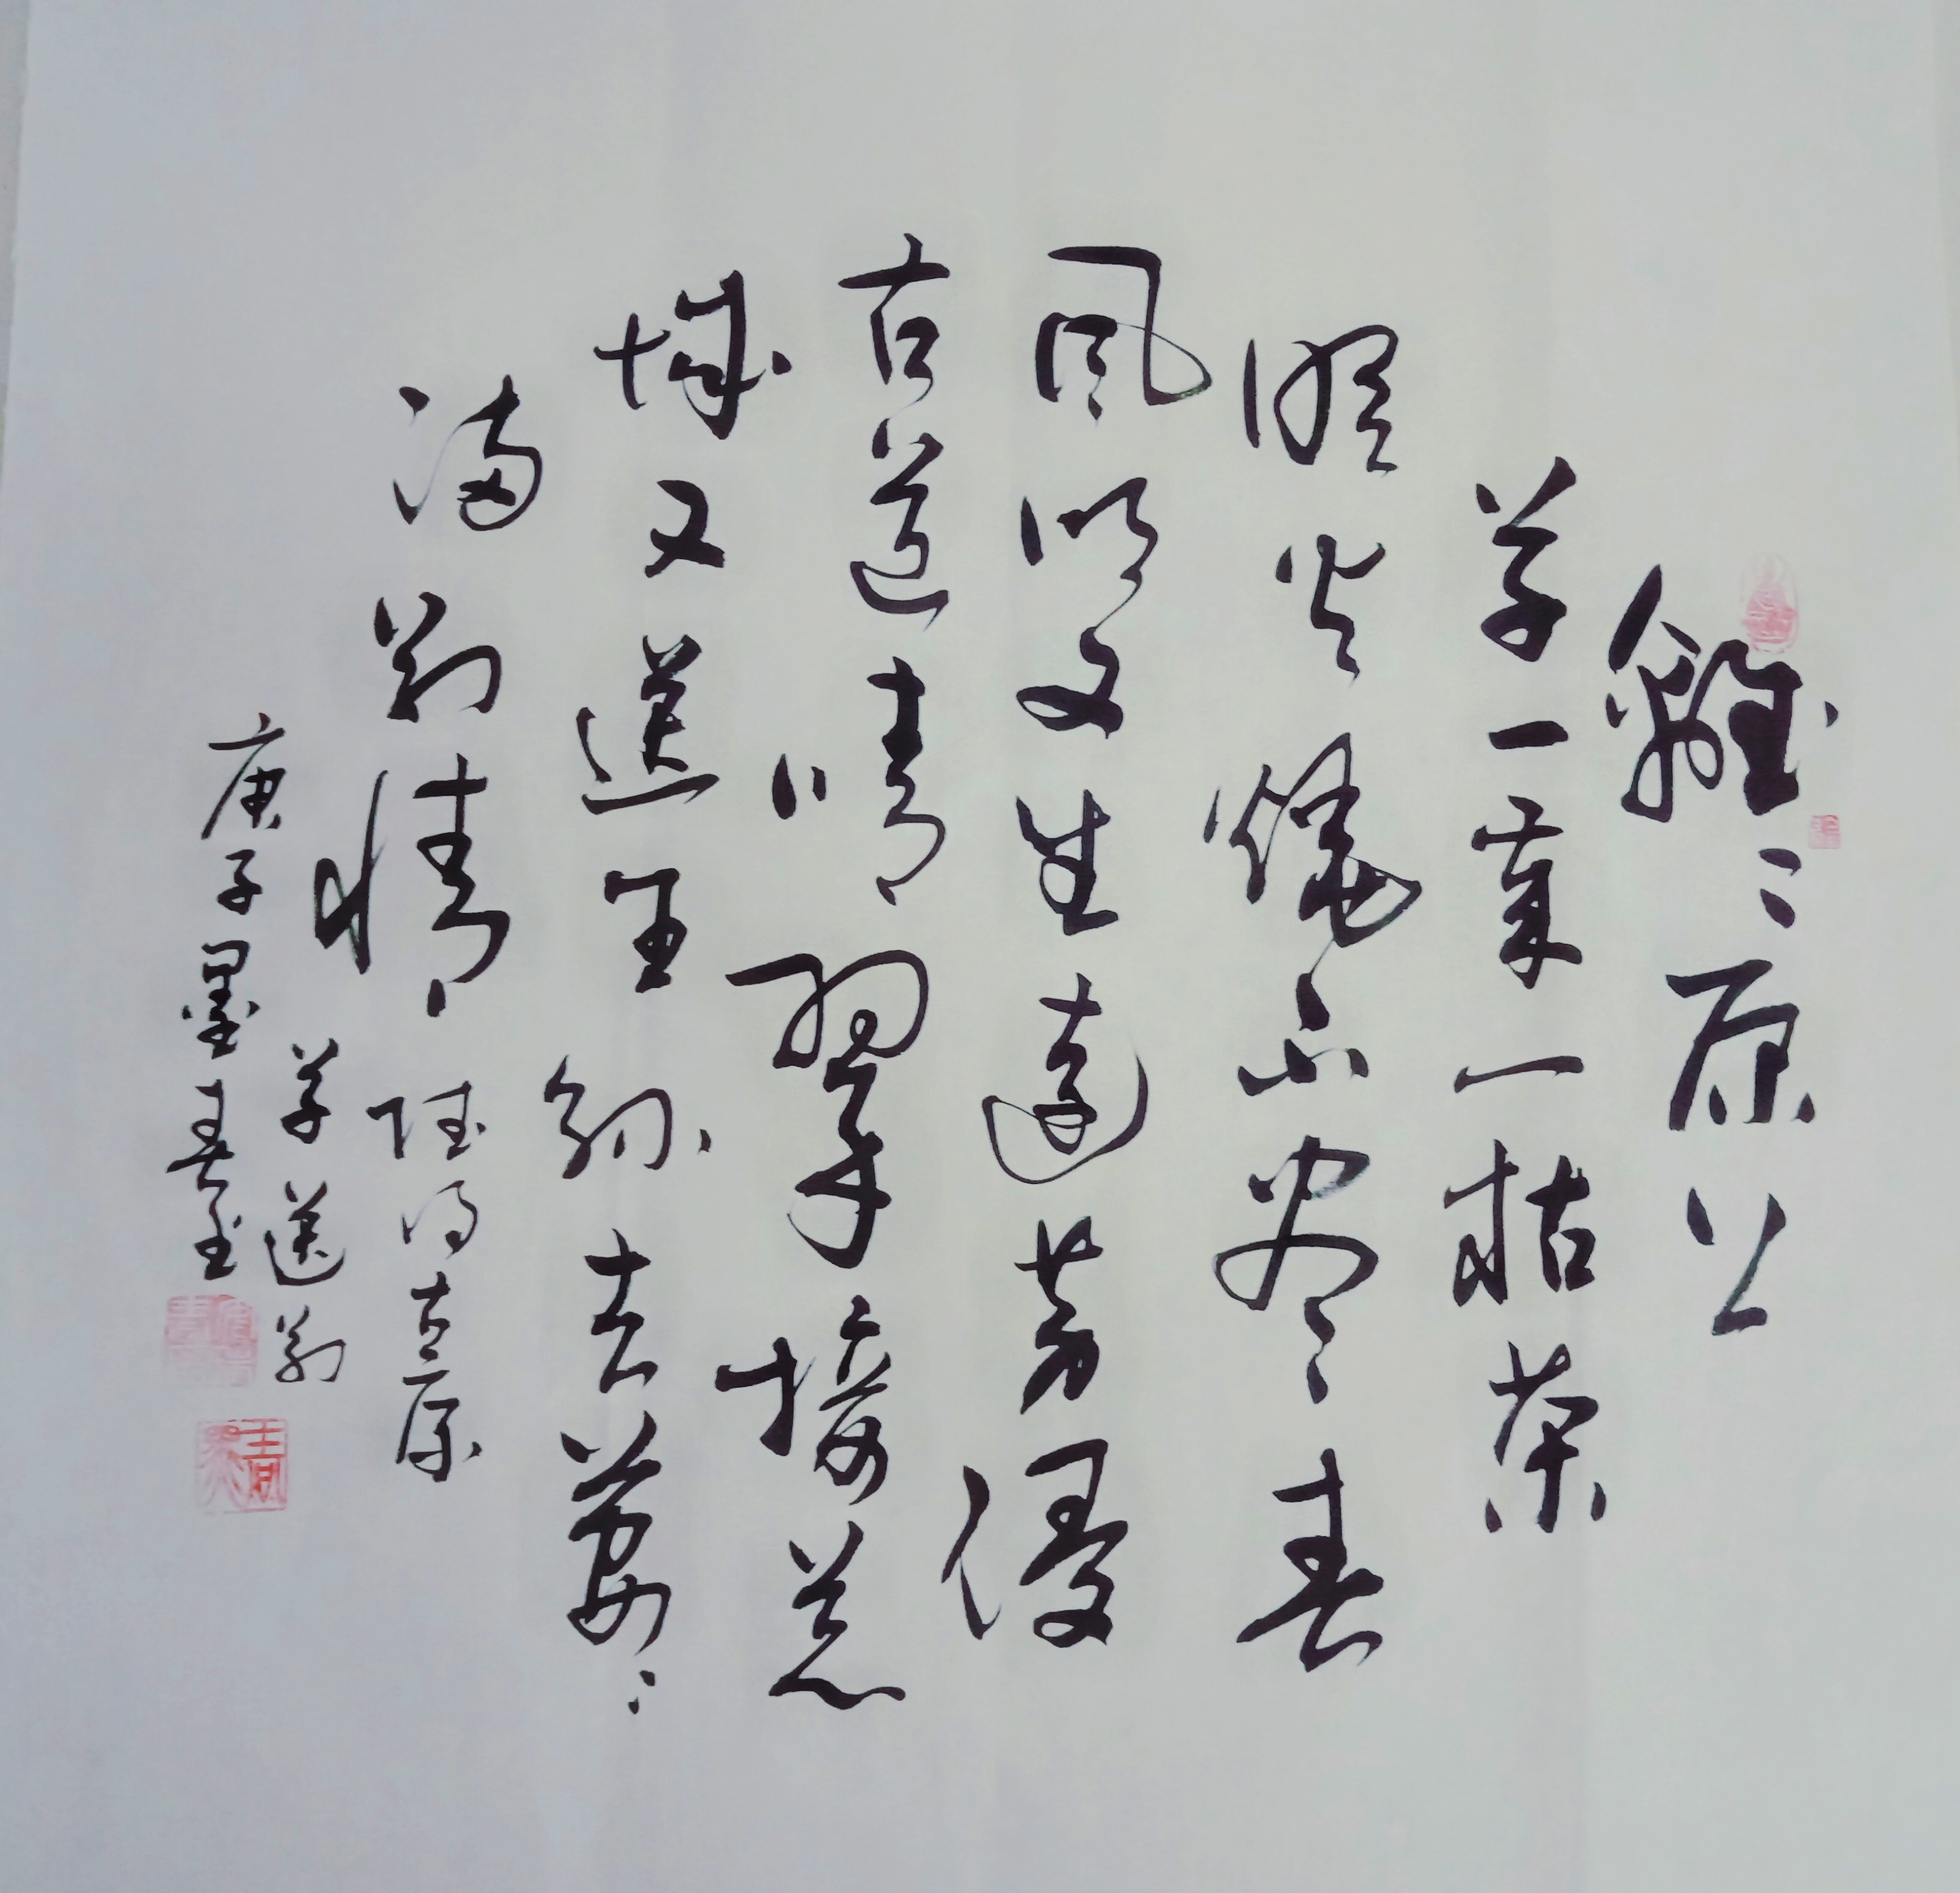 離〻原上
草一歲一枯榮
野火燒不盡春
風吹又生遠芳侵
古道晴翠接荒
城又送王孫去萋〻
滿別情
賦得古原
草送別
庚子墨春